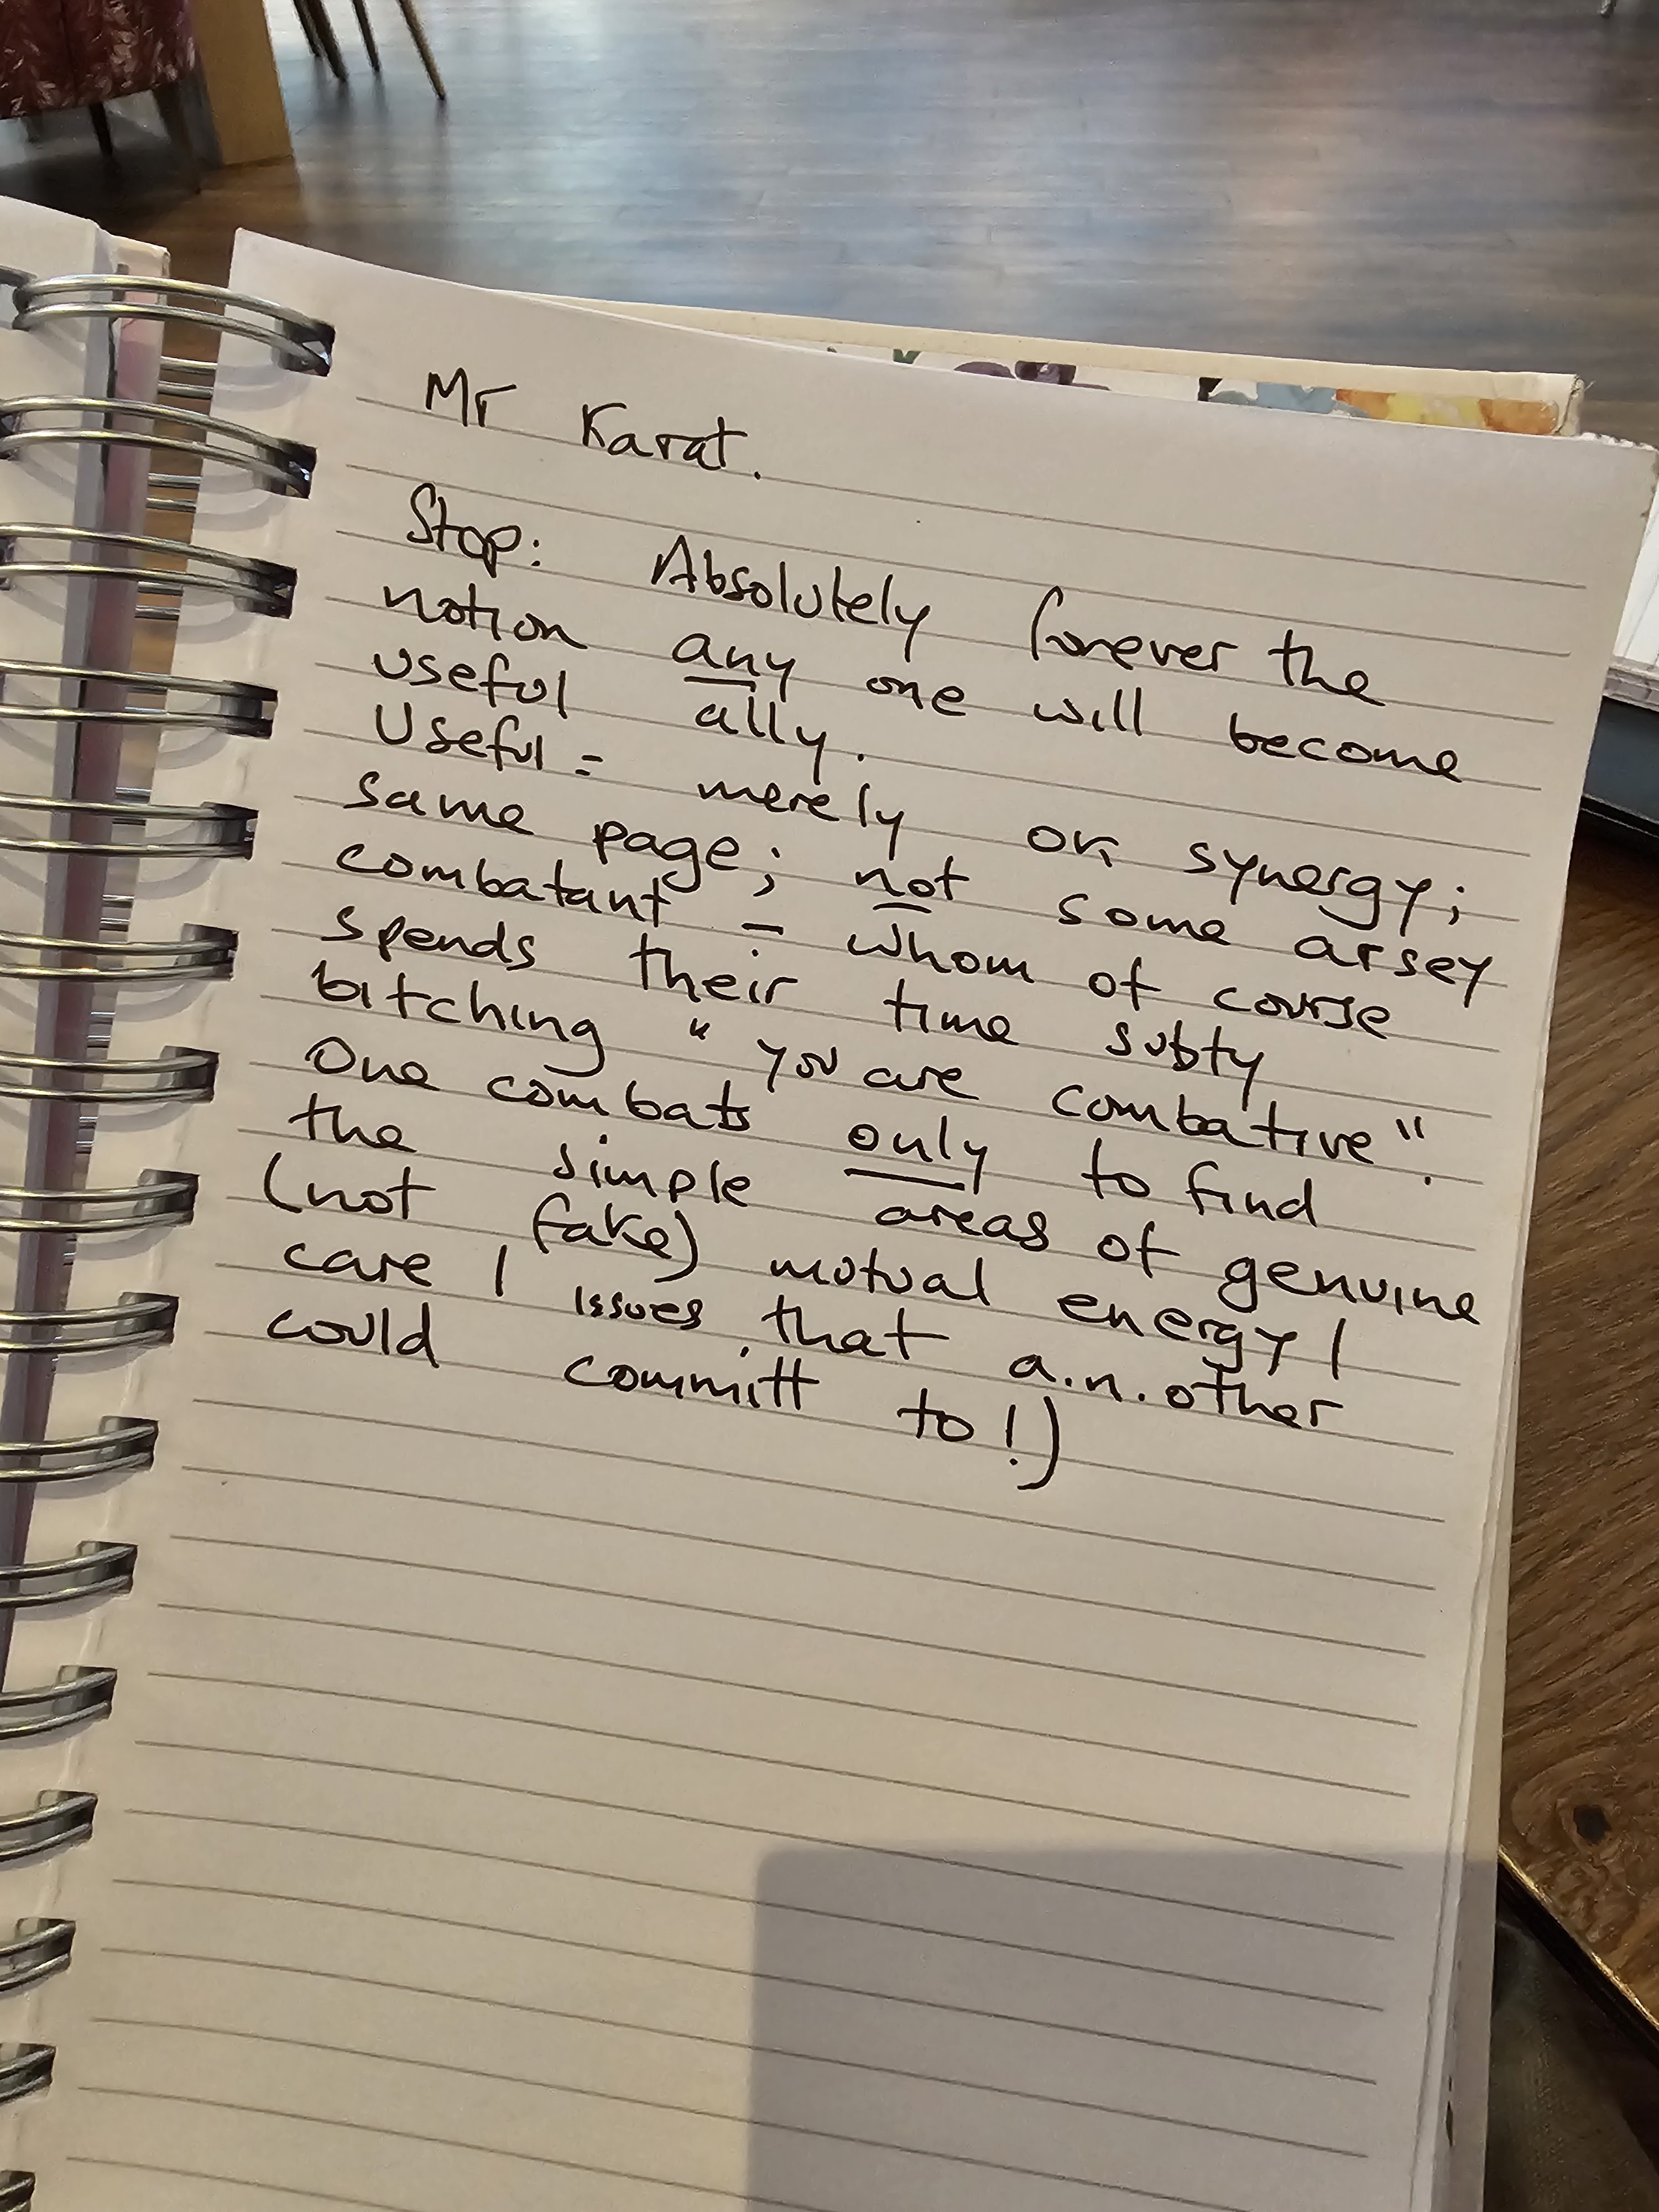 Mr Karat.
Stop: Absolutely forever the
notion any one will become
useful ally.
Useful = merely on synergy;
same page; not some arsey
combatant - whom of course
spends their time subty
bitching "you are combative".
One combats only to find
the simple areas of genuine
(not fake) mutual energy /
care / issues that a.n. other
could committ to!)